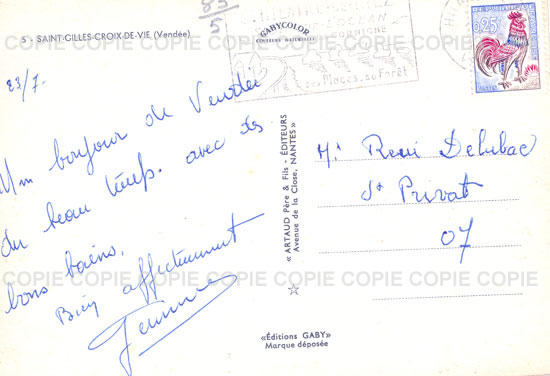 5 - SAINT-GILLES-CROIX-DE-VIE (Vendée)
83
5
GABYCOLOR
COULEURS NATURELLES
CORNICHE
Plages, sa Forêt
0,25
23/7.
Un bonjour de Vendée
du beau temps. avec des
bons bains.
Bien affectueusement
« ARTAUD Père & Fils - ÉDITEURS
Avenue de la Close, NANTES »
Mr René Delubac
St Privat
07
«Éditions GABY»
Marque déposée
COPIE COPIE COPIE COPIE COPIE COPIE COPIE COPIE
COPIE COPIE COPIE COPIE COPIE COPIE COPIE COPIE
COPIE COPIE COPIE COPIE COPIE COPIE COPIE COPIE